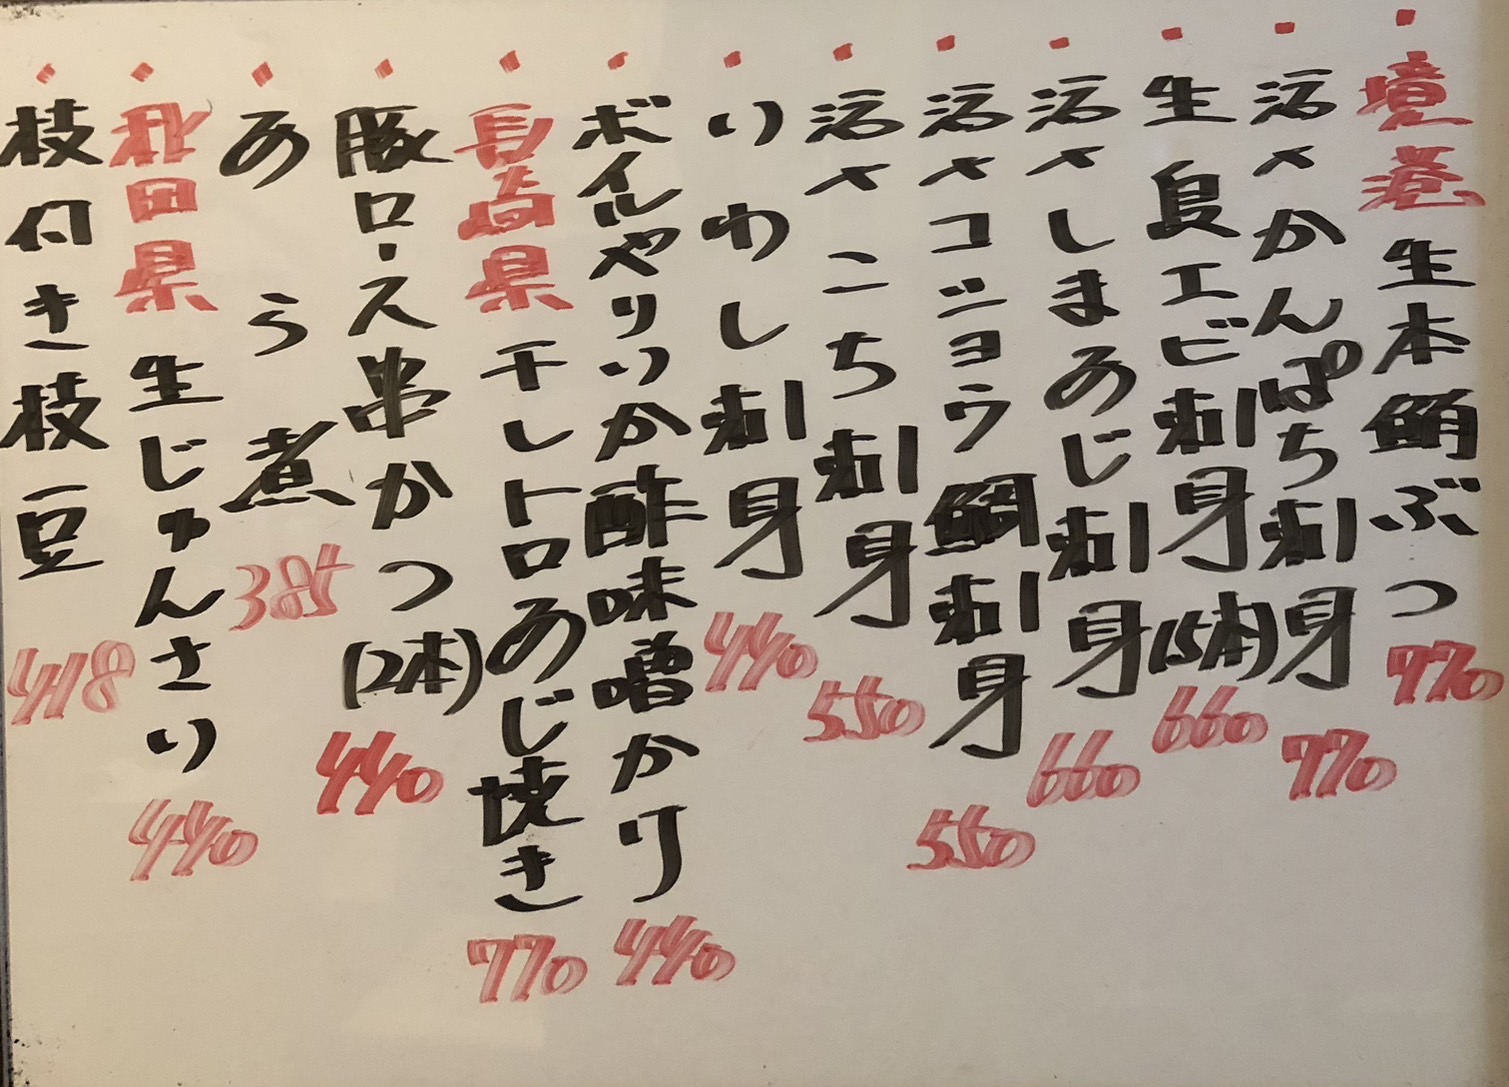 境港 生本鮪ぶつ 770
活〆かんぱち刺身 770
生 エビ刺身(5本) 660
活〆しまあじ刺身 660
活〆コショウ鯛刺身 550
活〆こち刺身 550
いわし刺身 440
ボイルやりいか酢味噌かけ 440
長崎県 干しトロあじ焼き 770
豚ロース串かつ(2本) 440
あら煮 385
秋田県 生じゅんさい 440
枝付き枝豆 418